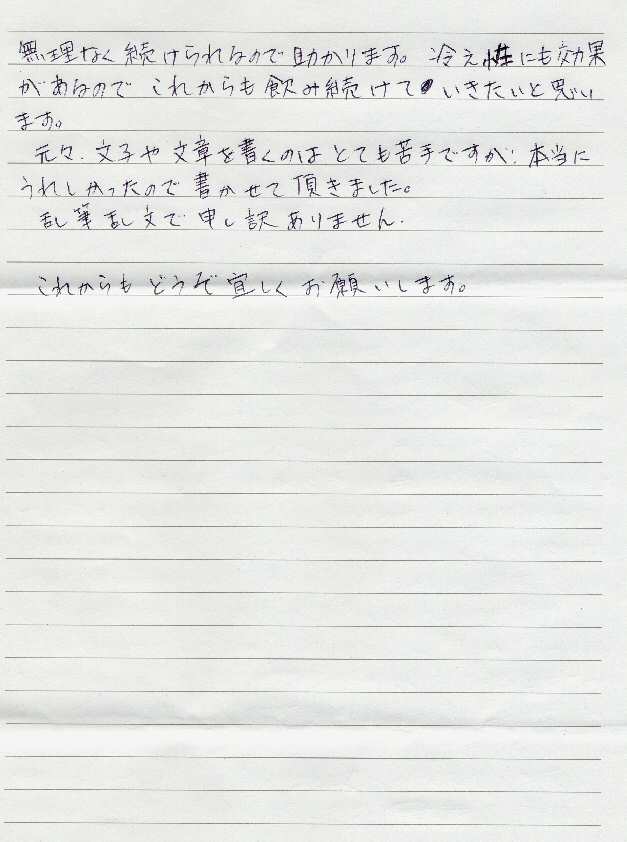 無理なく続けられるので助かります。冷え性にも効果
があるので これからも飲み続けて いきたいと思い
ます。
元々、文字や文章を書くのはとても苦手ですが、本当に
うれしかったので書かせて頂きました。
乱筆乱文で申し訳ありません。
これからもどうぞ宜しくお願いします。